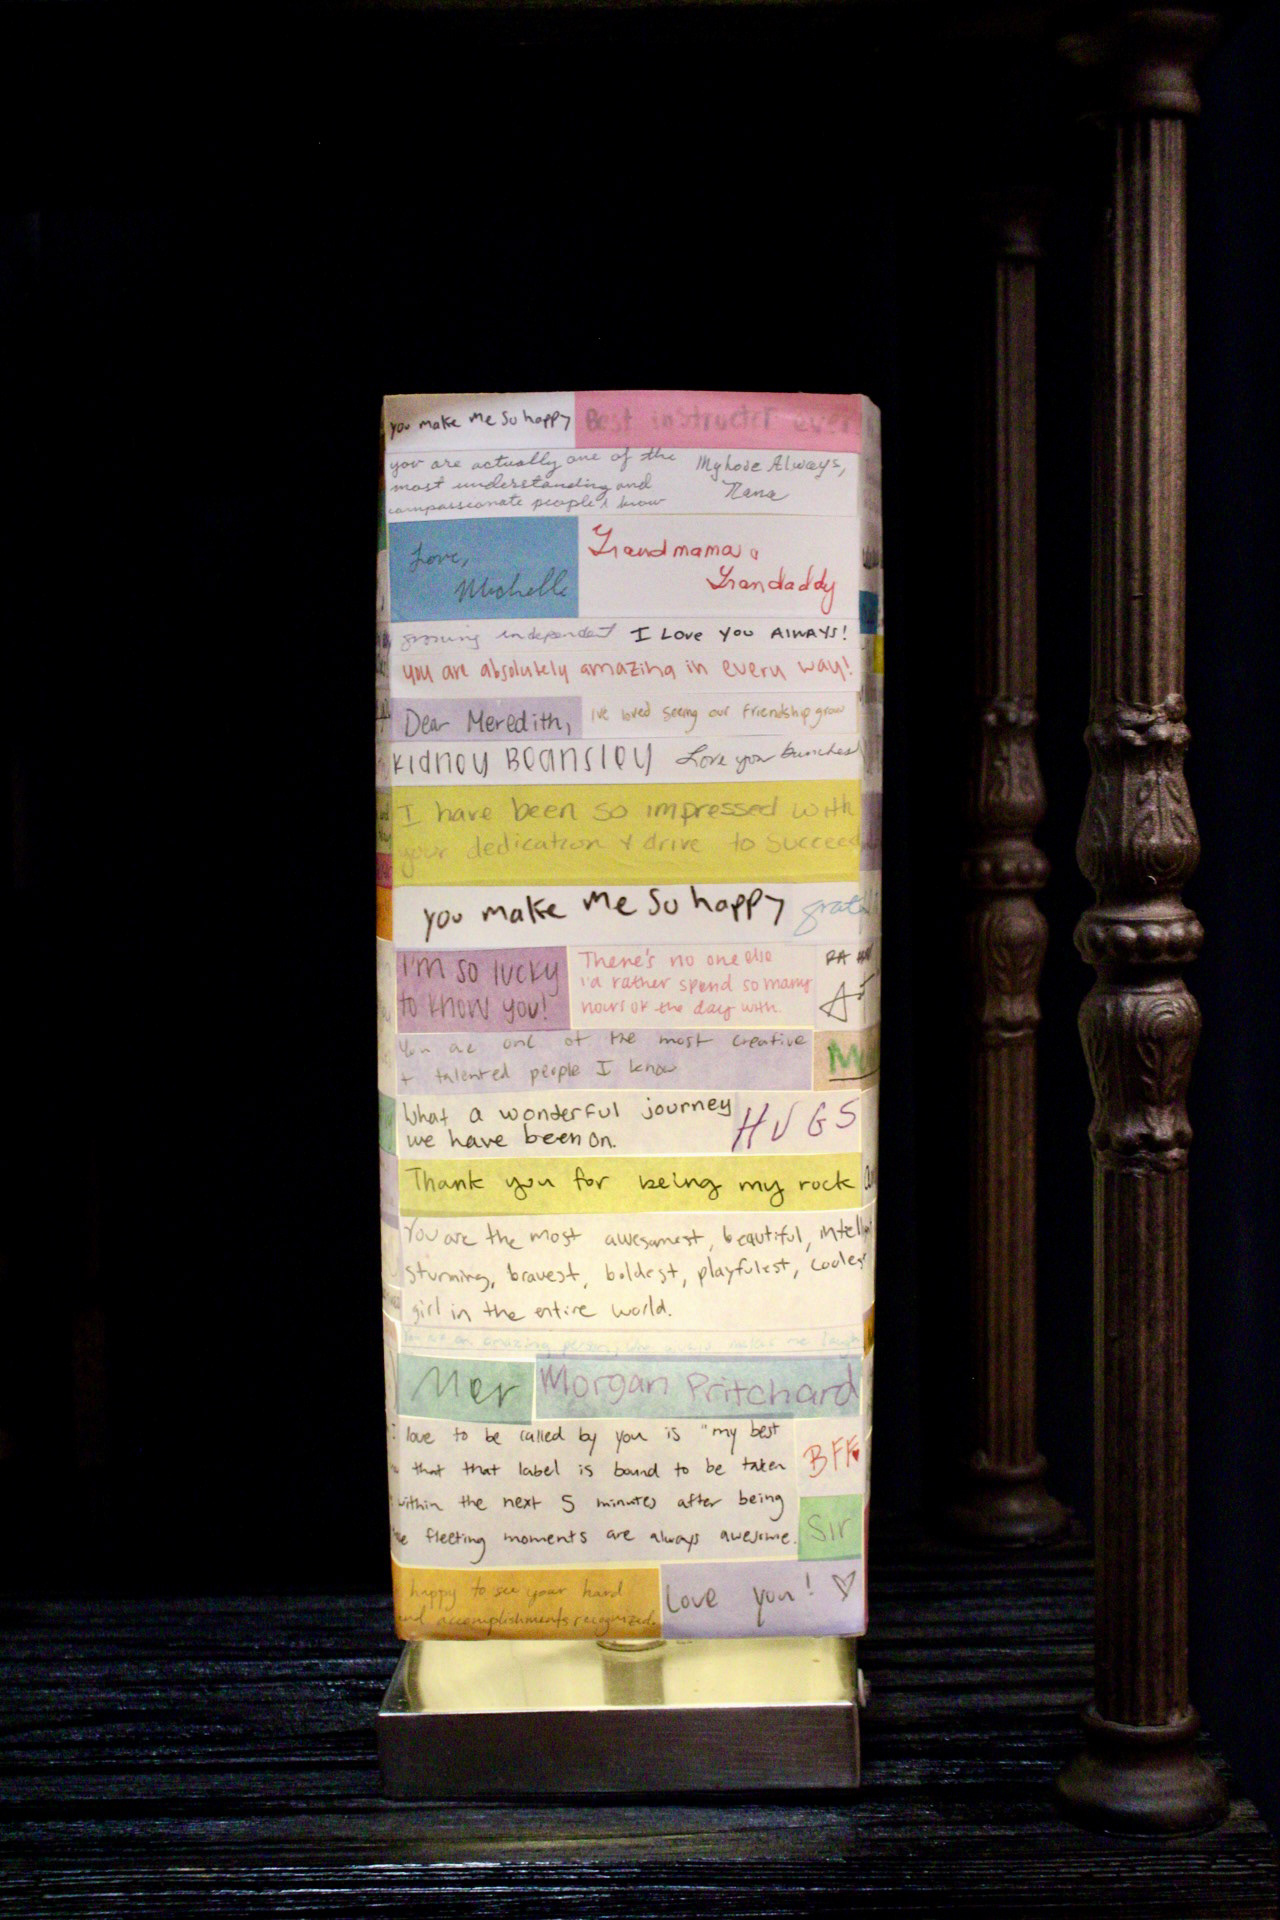 you make me so happy
Best instructer ever
you are actually one of the
most understanding and
compassionate people I know
My love Always,
Nana
Love,
Michelle
Grandmama &
Grandaddy
growing independent
I Love you AlWAYS!
you are absolutely amazing in every way!
Dear Meredith,
I've loved seeing our friendship grow
Kidney Beansley
Love you bunches
I have been so impressed with
your dedication & drive to succeed
you make me so happy
I'm so lucky
to know you!
There's no one else
i'd rather spend so many
hours of the day with.
You are one of the most creative
+ talented people I know
What a wonderful journey
we have been on.
HUGS
Thank you for being my rock
You are the most awesomest, beautiful,
stunning, bravest, boldest, playfulest,
girl in the entire world.
You are an amazing person, who makes me laugh
Mer
Morgan Pritchard
I love to be called by you is "my best
that that label is bound to be taken
within the next 5 minutes after being
fleeting moments are always awesome.
BFF
Sir
happy to see your hard
and accomplishments recognized.
Love you! ♡